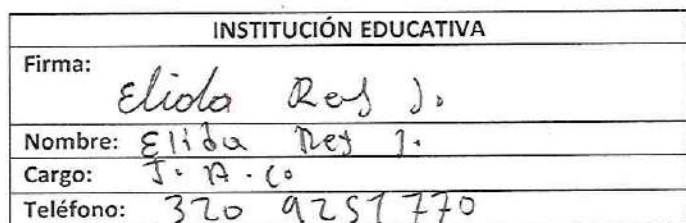 INSTITUCIÓN EDUCATIVA
Firma:
Elida Rey J.
Nombre: Elida Rey J.
Cargo: J. A. C.
Teléfono: 320 9251770